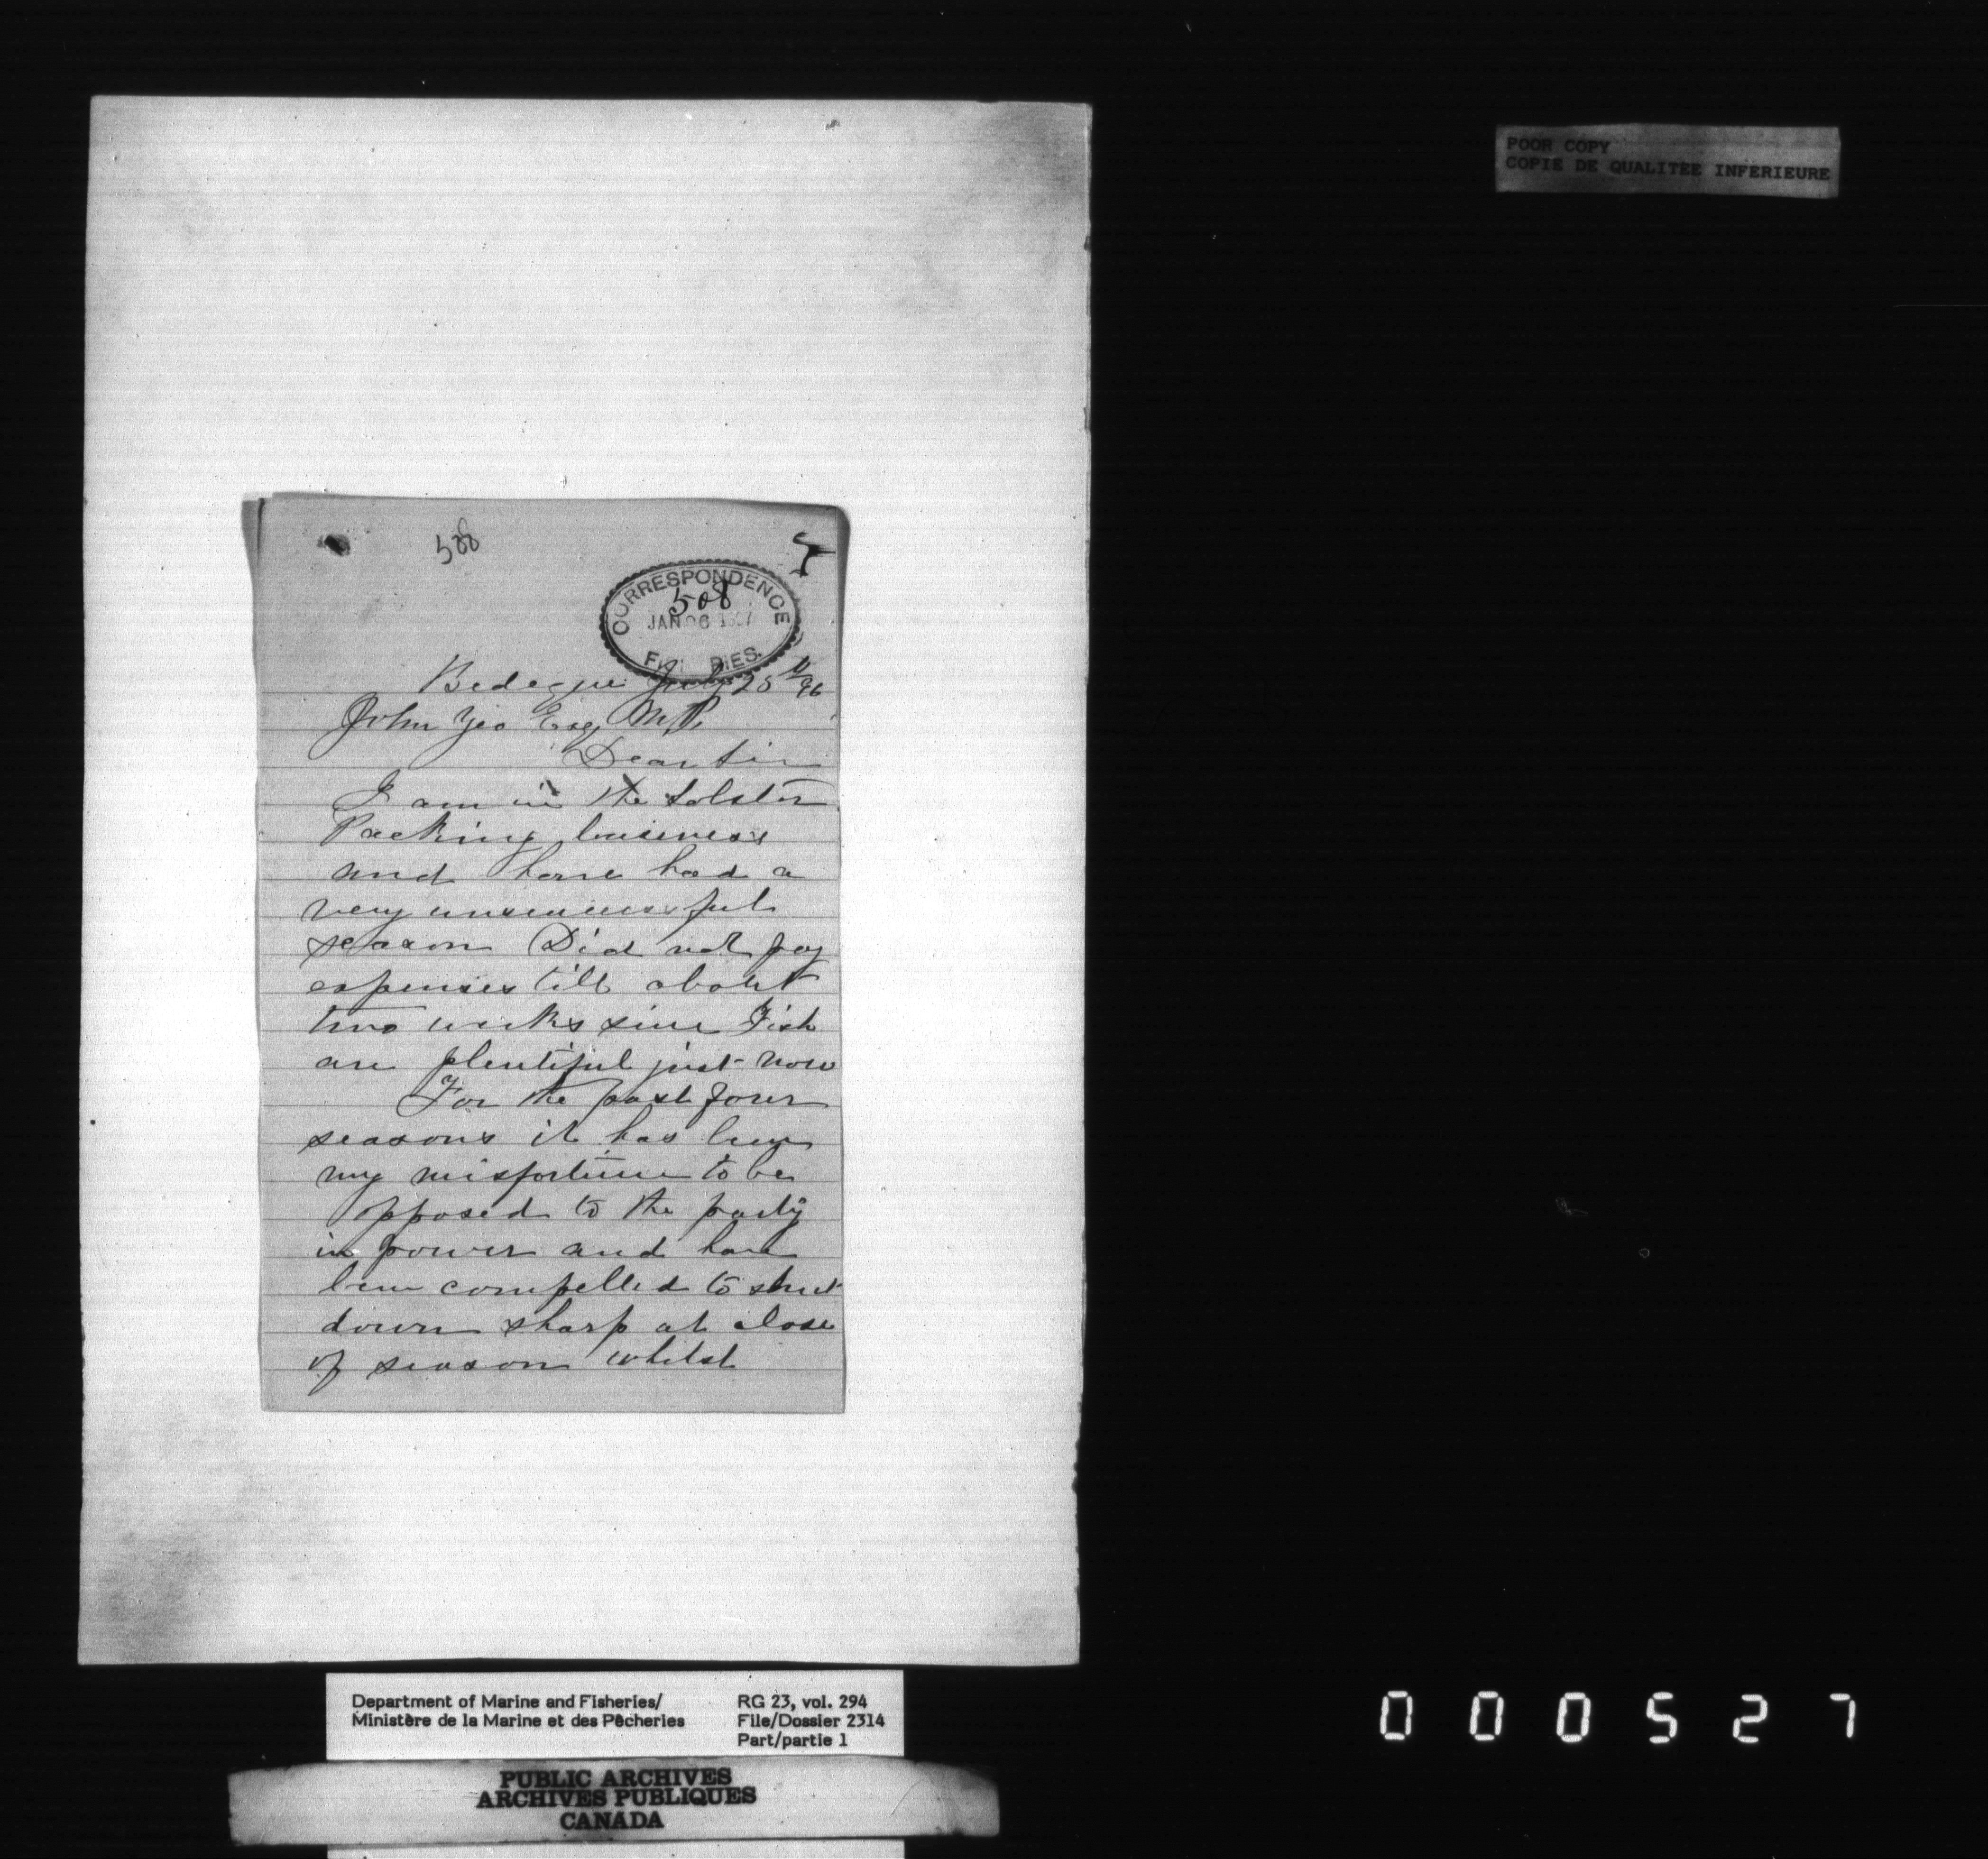 POOR COPY
COPIE DE QUALITEE INFERIEURE
508
5
CORRESPONDENCE
508
JAN 6
Bedeque July 25th 96
John Yeo Esq M.P.
Dear Sir
I am in the Lobster
Packing business
and have had a
very unsuccessful
season Did not pay
expenses till about
two weeks since Fish
are plentiful just now
For the past four
seasons it has been
my misfortune to be
opposed to the party
in power and have
been compelled to shut
down sharp at close
of season whilst
Department of Marine and Fisheries/
Ministère de la Marine et des Pêcheries
RG 23, vol. 294
File/Dossier 2314
Part/partie 1
PUBLIC ARCHIVES
ARCHIVES PUBLIQUES
CANADA
000527